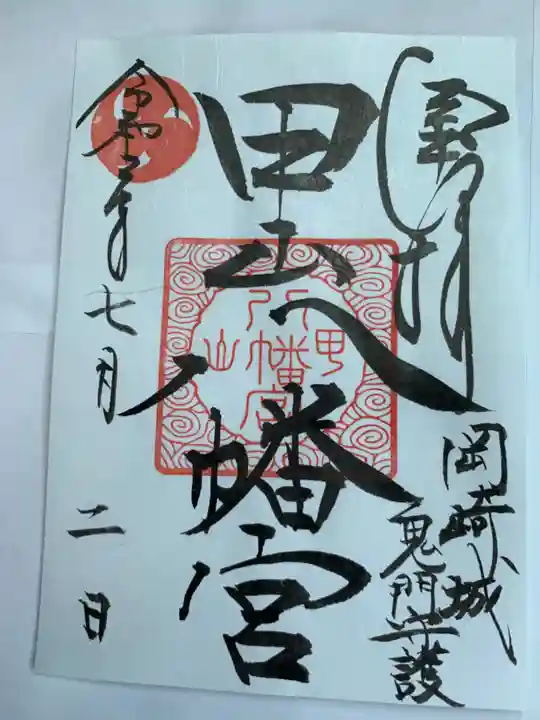 奉拝
岡崎城
鬼門守護
甲山八幡宮
甲山
八幡宮
令和二年七月二日